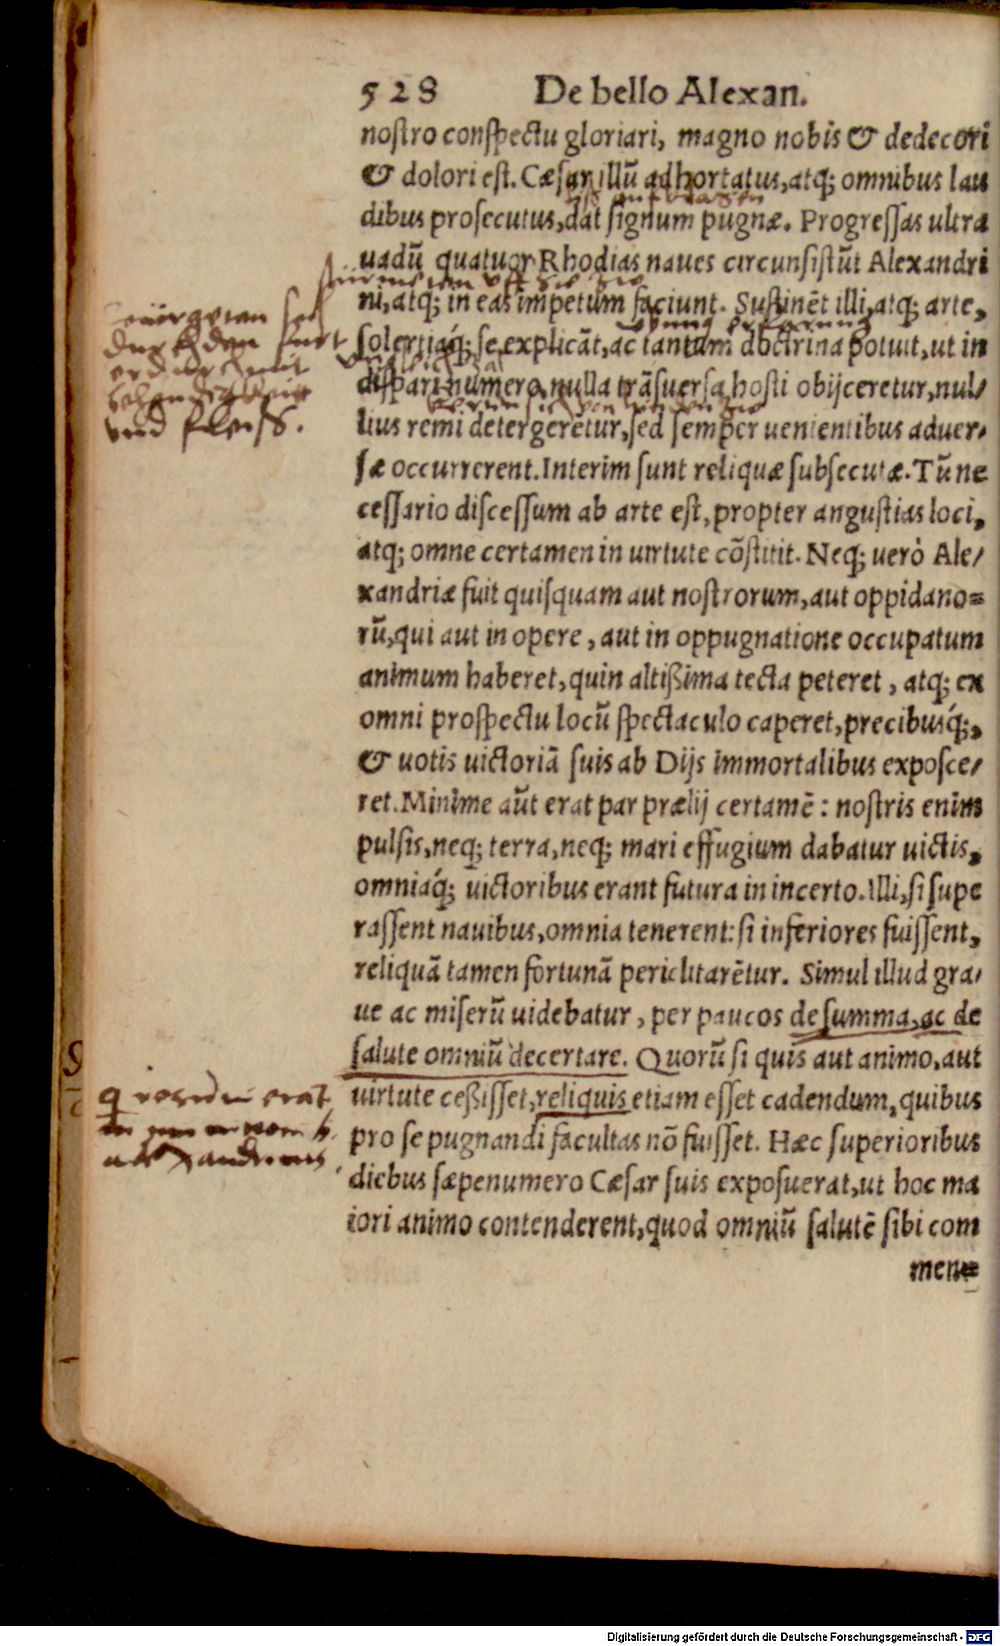 528 De bello Alexan.
nostro conspectu gloriari, magno nobis & dedecori
& dolori est. Cæsar illū adhortatus, atq; omnibus lau
dibus prosecutus, dat signum pugnæ. Progressas ultra
uadū quatuor Rhodias naues circunsistūt Alexandri
ni, atq; in eas impetum faciunt. Sustinēt illi, atq; arte,
solertiaq́; se explicāt, ac tantum doctrina potuit, ut in
dispari numero, nulla trāsuersa hosti obijceretur, nul/
lius remi detergerētur, sed semper uenientibus aduer/
sæ occurrerent. Interim sunt reliquæ subsecutæ. Tū ne
cessario discessum ab arte est, propter angustias loci,
atq; omne certamen in uirtute cōstitit. Neq; uerò Ale/
xandriæ fuit quisquam aut nostrorum, aut oppidano=
rū, qui aut in opere, aut in oppugnatione occupatum
animum haberet, quin altißima tecta peteret, atq; ex
omni prospectu locū spectaculo caperet, precibusq́;,
& uotis uictoriā suis ab Dijs immortalibus exposce/
ret. Minime aūt erat par prælij certamē: nostris enim
pulsis, neq; terra, neq; mari effugium dabatur uictis,
omniaq́; uictoribus erant futura in incerto. Illi, si supe
rassent nauibus, omnia tenerent: si inferiores fuissent,
reliquā tamen fortunā periclitarētur. Simul illud gra/
ue ac miserū uidebatur, per paucos de summa, ac de
salute omniū decertare. Quorū si quis aut animo, aut
uirtute ceßisset, reliquis etiam esset cadendum, quibus
pro se pugnandi facultas nō fuisset. Hæc superioribus
diebus sæpenumero Cæsar suis exposuerat, ut hoc ma
iori animo contenderent, quod omniū salutē sibi com
men=
durch den
mit
und fleiss.
erat
Digitalisierung gefördert durch die Deutsche Forschungsgemeinschaft - DFG